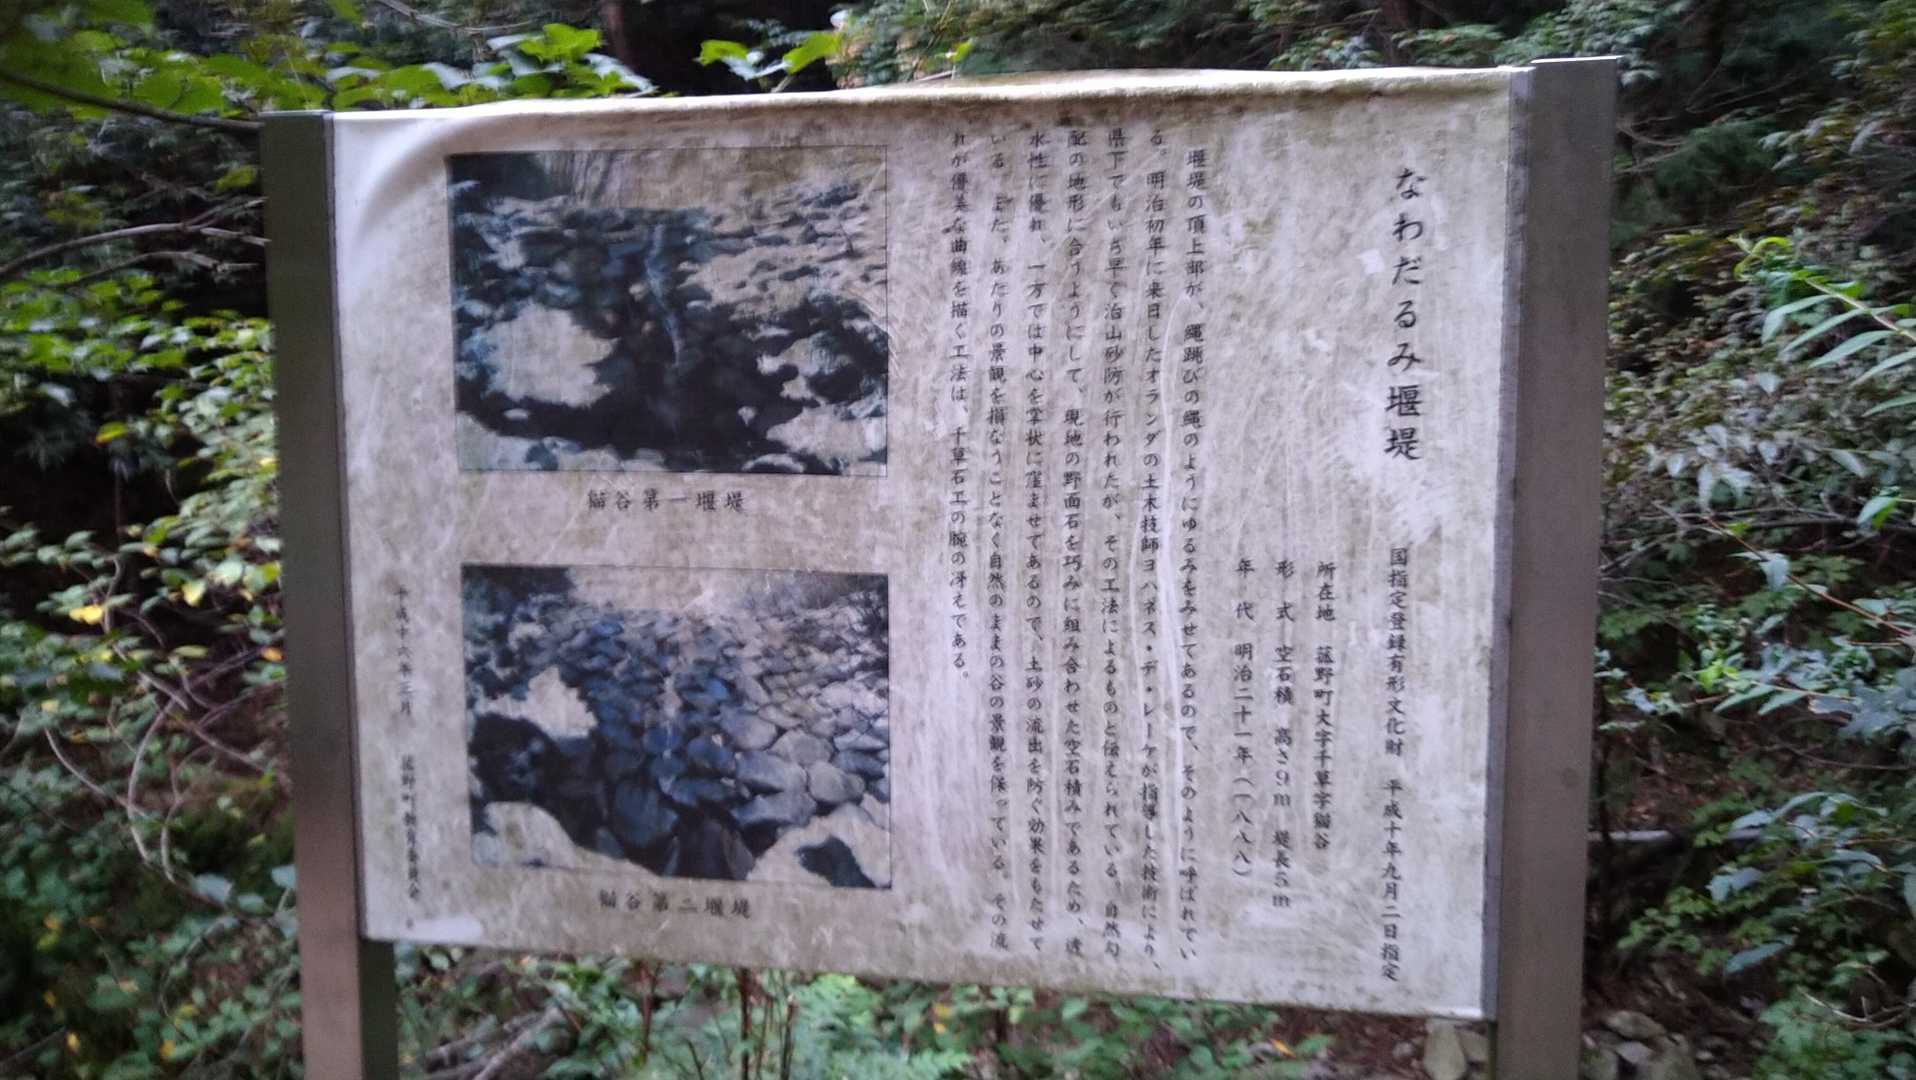 なわだるみ堰堤
国指定登録有形文化財 平成十年九月二日指定
所在地 菰野町大字千草字猫谷
形式 空石積 高さ9m 堤長5m
年代 明治二十一年(一八八八)
堰堤の頂上部が、縄跳びの縄のようにゆるみをみせてあるので、そのように呼ばれてい
る。明治初年に来日したオランダの土木技師ヨハネス・デ・レーケが指導した技術により、
県下でもいち早く治山砂防が行われたが、その工法によるものと伝えられている。自然勾
配の地形に合うようにして、現地の野面石を巧みに組み合わせた空石積みであるため、透
水性に優れ、一方では中心を掌状に窪ませてあるので、土砂の流出を防ぐ効果をもたせて
いる。また、あたりの景観を損なうことなく自然のままの谷の景観を保っている。その流
れが優美な曲線を描く工法は、千草石工の腕の冴えである。
猫谷第一堰堤
猫谷第二堰堤
平成十六年三月 菰野町教育委員会